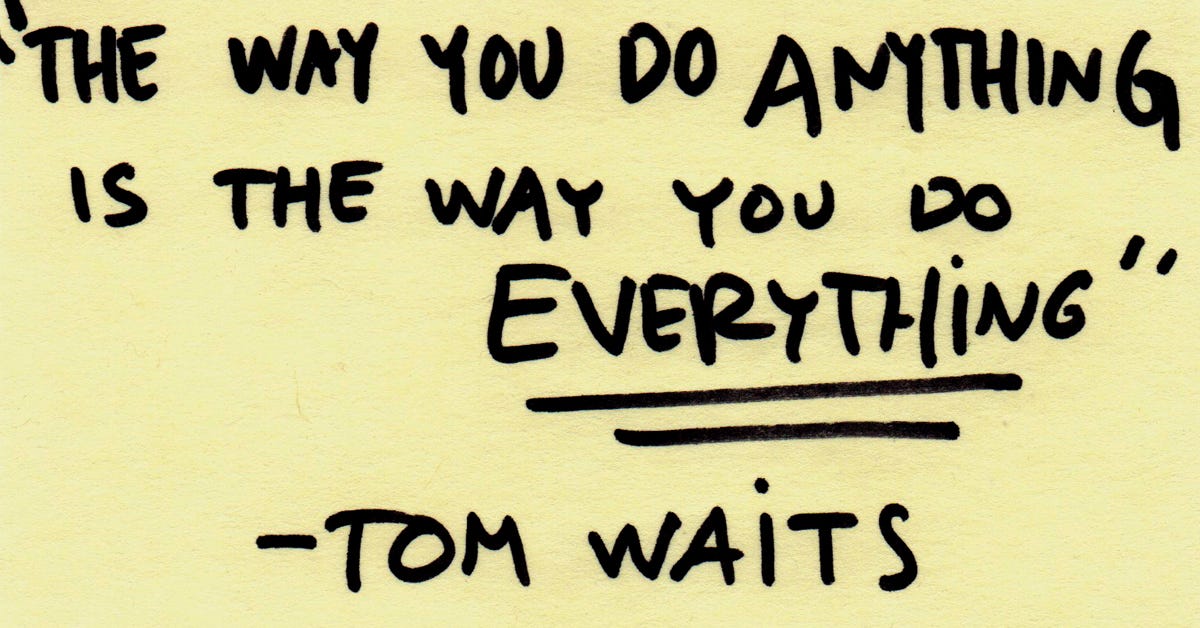 "THE WAY YOU DO ANYTHING
IS THE WAY YOU DO
EVERYTHING"
-TOM WAiTS